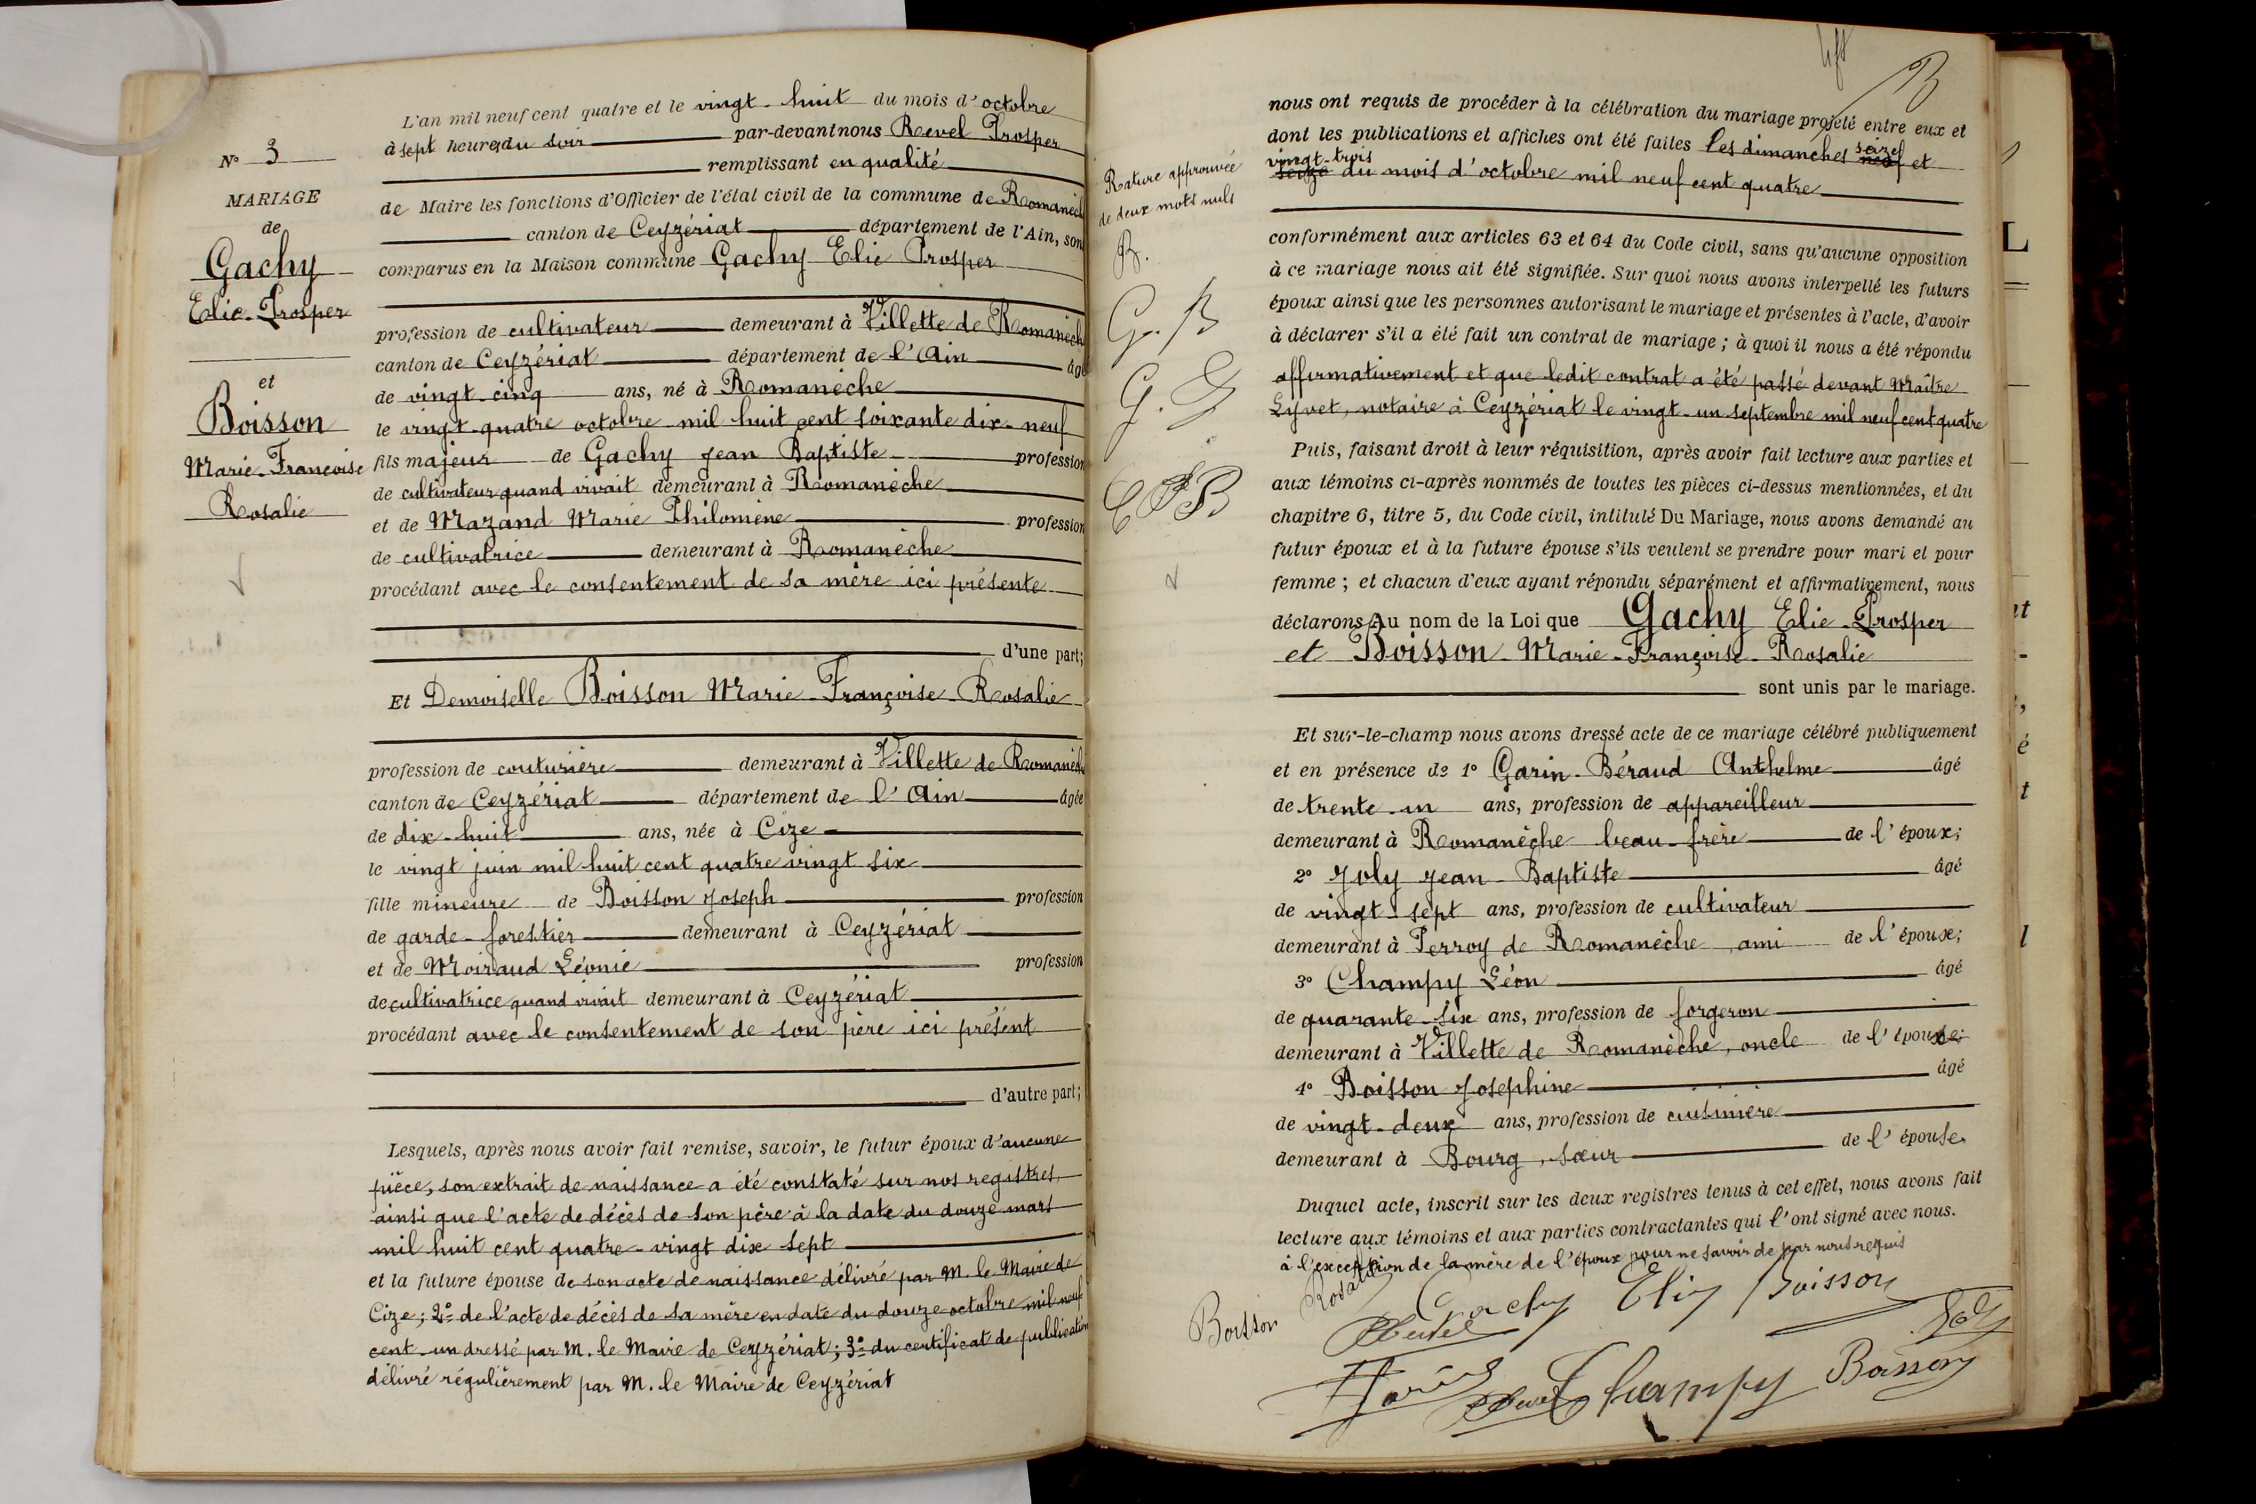 N° 3
MARIAGE
de
Gachy
Elie-Prosper
et
Boisson
Marie-Françoise
Rosalie
L'an mil neuf cent quatre et le vingt-huit du mois d'octobre
à sept heures du soir par-devant nous Revel Prosper
remplissant en qualité
de Maire les fonctions d'Officier de l'état civil de la commune de Romanèche
canton de Ceyzériat département de l'Ain, sont
comparus en la Maison commune Gachy Elie Prosper
profession de cultivateur demeurant à Villette de Romanèche
canton de Ceyzériat département de l'Ain âgé
de vingt-cinq ans, né à Romanèche
le vingt-quatre octobre mil huit cent soixante dix-neuf
fils majeur de Gachy Jean Baptiste profession
de cultivateur quand vivait demeurant à Romanèche
et de Mazand Marie Philomène profession
de cultivatrice demeurant à Romanèche
procédant avec le consentement de sa mère ici présente
d'une part;
Et Demoiselle Boisson Marie-Françoise-Rosalie
profession de couturière demeurant à Villette de Romanèche
canton de Ceyzériat département de l'Ain âgée
de dix-huit ans, née à Cize
le vingt juin mil huit cent quatre vingt six
fille mineure de Boisson Joseph profession
de garde-forestier demeurant à Ceyzériat
et de Moiraud Léonie profession
de cultivatrice quand vivait demeurant à Ceyzériat
procédant avec le consentement de son père ici présent
d'autre part;
Lesquels, après nous avoir fait remise, savoir, le futur époux d'aucune
pièce, son extrait de naissance a été constaté sur nos registres,
ainsi que l'acte de décès de son père à la date du douze mars
mil huit cent quatre-vingt dix sept
et la future épouse de son acte de naissance délivré par M. le Maire de
Cize; 2° de l'acte de décès de sa mère en date du douze octobre mil neuf
cent-un dressé par M. le Maire de Ceyzériat; 3° du certificat de publication
délivré régulièrement par M. le Maire de Ceyzériat
nous ont requis de procéder à la célébration du mariage projeté entre eux et
dont les publications et affiches ont été faites les dimanches neuf seize et
seize vingt-trois du mois d'octobre mil neuf cent quatre
Rature approuvée
de deux mots nuls
conformément aux articles 63 et 64 du Code civil, sans qu'aucune opposition
à ce mariage nous ait été signifiée. Sur quoi nous avons interpellé les futurs
époux ainsi que les personnes autorisant le mariage et présentes à l'acte, d'avoir
à déclarer s'il a été fait un contrat de mariage; à quoi il nous a été répondu
affirmativement et que ledit contrat a été passé devant Maître
Lyvet, notaire à Ceyzériat le vingt-un septembre mil neuf cent quatre
Puis, faisant droit à leur réquisition, après avoir fait lecture aux parties et
aux témoins ci-après nommés de toutes les pièces ci-dessus mentionnées, et du
chapitre 6, titre 5, du Code civil, intitulé Du Mariage, nous avons demandé au
futur époux et à la future épouse s'ils veulent se prendre pour mari et pour
femme; et chacun d'eux ayant répondu séparément et affirmativement, nous
déclarons Au nom de la Loi que Gachy Elie-Prosper
et Boisson-Marie-Françoise-Rosalie
sont unis par le mariage.
Et sur-le-champ nous avons dressé acte de ce mariage célébré publiquement
et en présence de 1° Garin-Béraud Anthelme âgé
de trente-un ans, profession de appareilleur
demeurant à Romanèche beau-frère de l'époux;
2° Joly Jean-Baptiste âgé
de vingt-sept ans, profession de cultivateur
demeurant à Perroy de Romanèche, ami de l'époux;
3° Champy Léon âgé
de quarante-six ans, profession de forgeron
demeurant à Villette de Romanèche, oncle de l'épouse;
4° Boisson Josephine âgé
de vingt-deux ans, profession de cuisinière
demeurant à Bourg, sœur de l'épouse.
Duquel acte, inscrit sur les deux registres tenus à cet effet, nous avons fait
lecture aux témoins et aux parties contractantes qui l'ont signé avec nous.
à l'exception de la mère de l'époux pour ne savoir de par nous requis
Boisson Rosalie
Gachy Elie Boisson
Champy Boisson